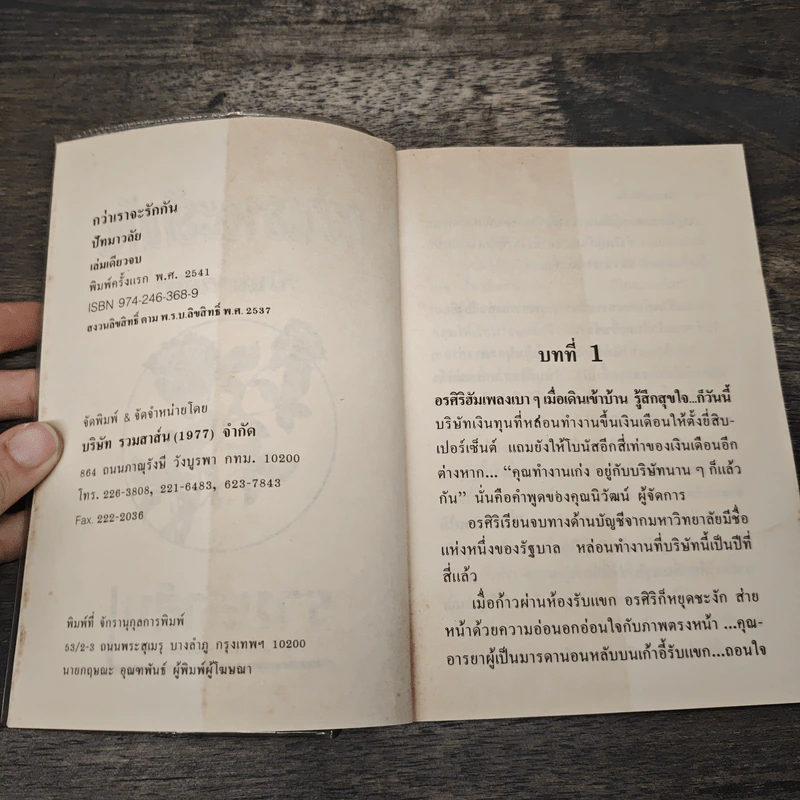 กว่าเราจะรักกัน
ปัทมาวลัย
เล่มเดียวจบ
พิมพ์ครั้งแรก พ.ศ. 2541
ISBN 974-246-368-9
สงวนลิขสิทธิ์ ตาม พ.ร.บ.ลิขสิทธิ์ พ.ศ. 2537
จัดพิมพ์ & จัดจำหน่ายโดย
บริษัท รวมสาส์น (1977) จำกัด
864 ถนนภาณุรังษี วังบูรพา กทม. 10200
โทร. 226-3808, 221-6483, 623-7843
Fax. 222-2036
พิมพ์ที่ จักรานุกูลการพิมพ์
53/2-3 ถนนพระสุเมรุ บางลำภู กรุงเทพฯ 10200
นายกฤษณะ อุณฑพันธ์ ผู้พิมพ์ผู้โฆษณา
บทที่ 1
อรศิริฮัมเพลงเบา ๆ เมื่อเดินเข้าบ้าน รู้สึกสุขใจ...ก็วันนี้
บริษัทเงินทุนที่หล่อนทำงานขึ้นเงินเดือนให้ตั้งยี่สิบ-
เปอร์เซ็นต์ แถมยังให้โบนัสอีกสี่เท่าของเงินเดือนอีก
ต่างหาก... “คุณทำงานเก่ง อยู่กับบริษัทนาน ๆ ก็แล้ว
กัน” นั่นคือคำพูดของคุณนิวัฒน์ ผู้จัดการ
อรศิริเรียนจบทางด้านบัญชีจากมหาวิทยาลัยมีชื่อ
แห่งหนึ่งของรัฐบาล หล่อนทำงานที่บริษัทนี้เป็นปีที่
สี่แล้ว
เมื่อก้าวผ่านห้องรับแขก อรศิริก็หยุดชะงัก ส่าย
หน้าด้วยความอ่อนอกอ่อนใจกับภาพตรงหน้า ...คุณ-
อารยาผู้เป็นมารดานอนหลับบนเก้าอี้รับแขก...ถอนใจ